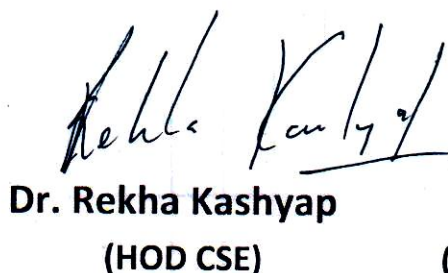 Rekha Kashyap
Dr. Rekha Kashyap
(HOD CSE)
(